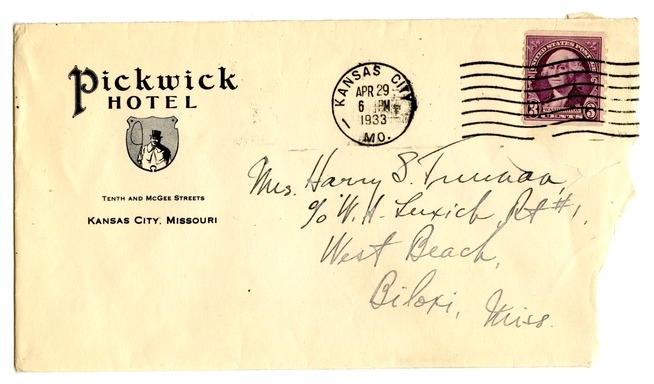 Pickwick
HOTEL
TENTH AND MCGEE STREETS
KANSAS CITY, MISSOURI
KANSAS CITY
APR 29
6 PM
1933
MO.
UNITED STATES POSTAGE
3 3
CENTS
Mrs. Harry S. Truman,
c/o W. H. Rt #1,
West Beach,
Biloxi, Miss.